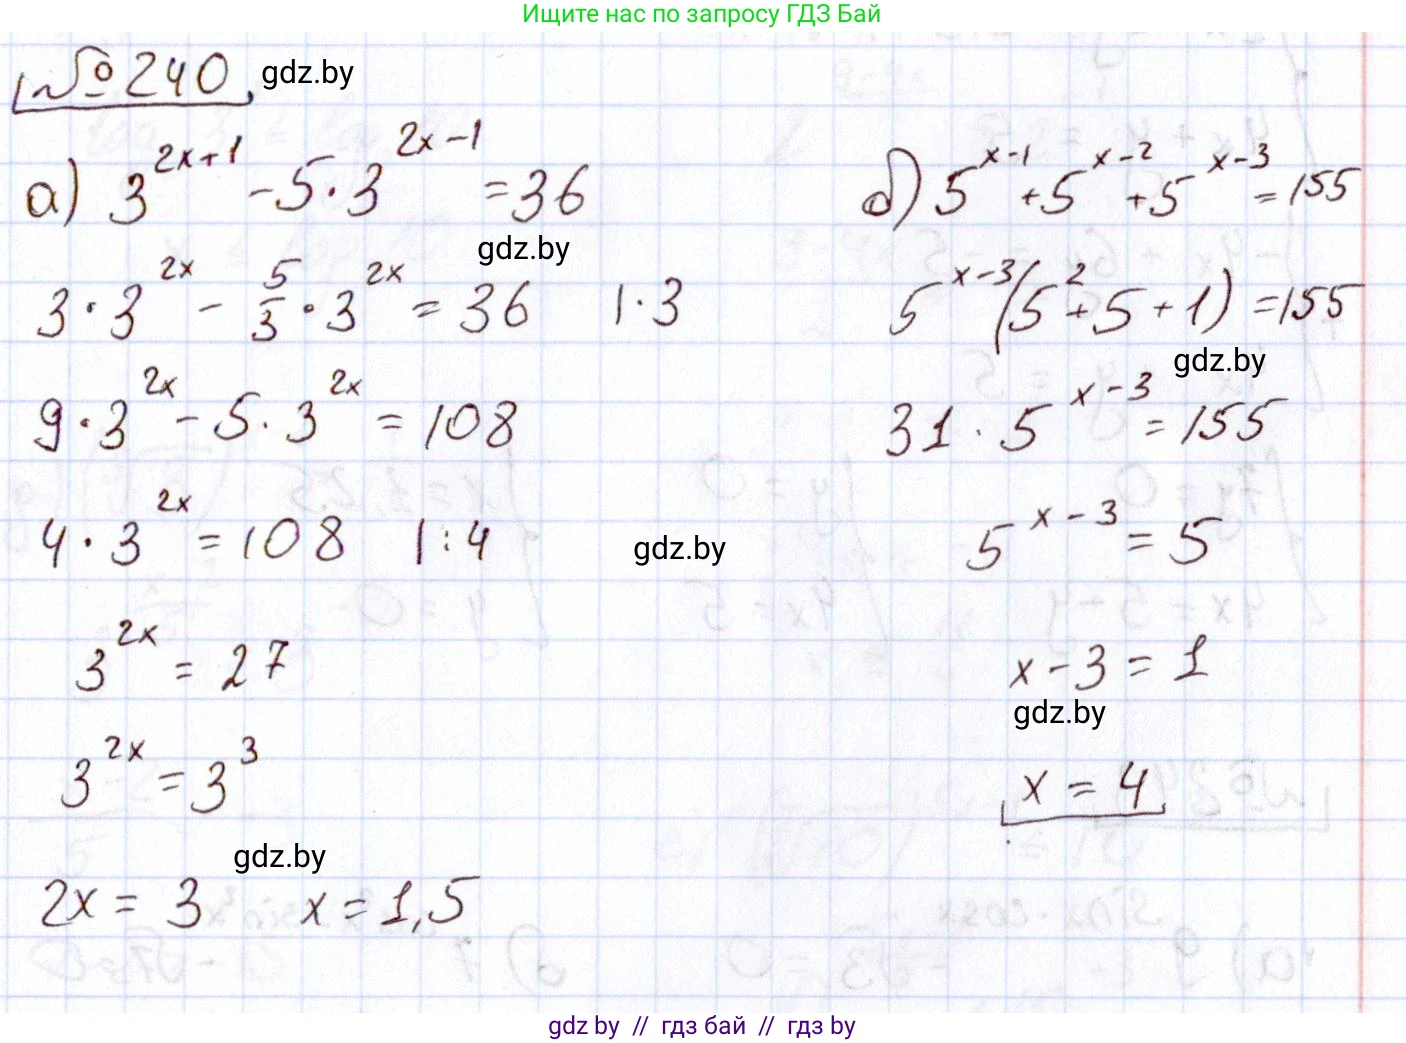 Ищите нас по запросу ГДЗ Бай
№ 240 gdz.by
а) 3^(2x+1) - 5·3^(2x-1) = 36
gdz.by
3·3^(2x) - 5/3·3^(2x) = 36 |·3
9·3^(2x) - 5·3^(2x) = 108
4·3^(2x) = 108 |:4
gdz.by
3^(2x) = 27
3^(2x) = 3^3
gdz.by
2x = 3 x = 1,5
б) 5^(x-1) + 5^(x-2) + 5^(x-3) = 155
5^(x-3)(5^2 + 5 + 1) = 155
gdz.by
31·5^(x-3) = 155
5^(x-3) = 5
x - 3 = 1
gdz.by
x = 4
gdz by // гдз бай // гдз by